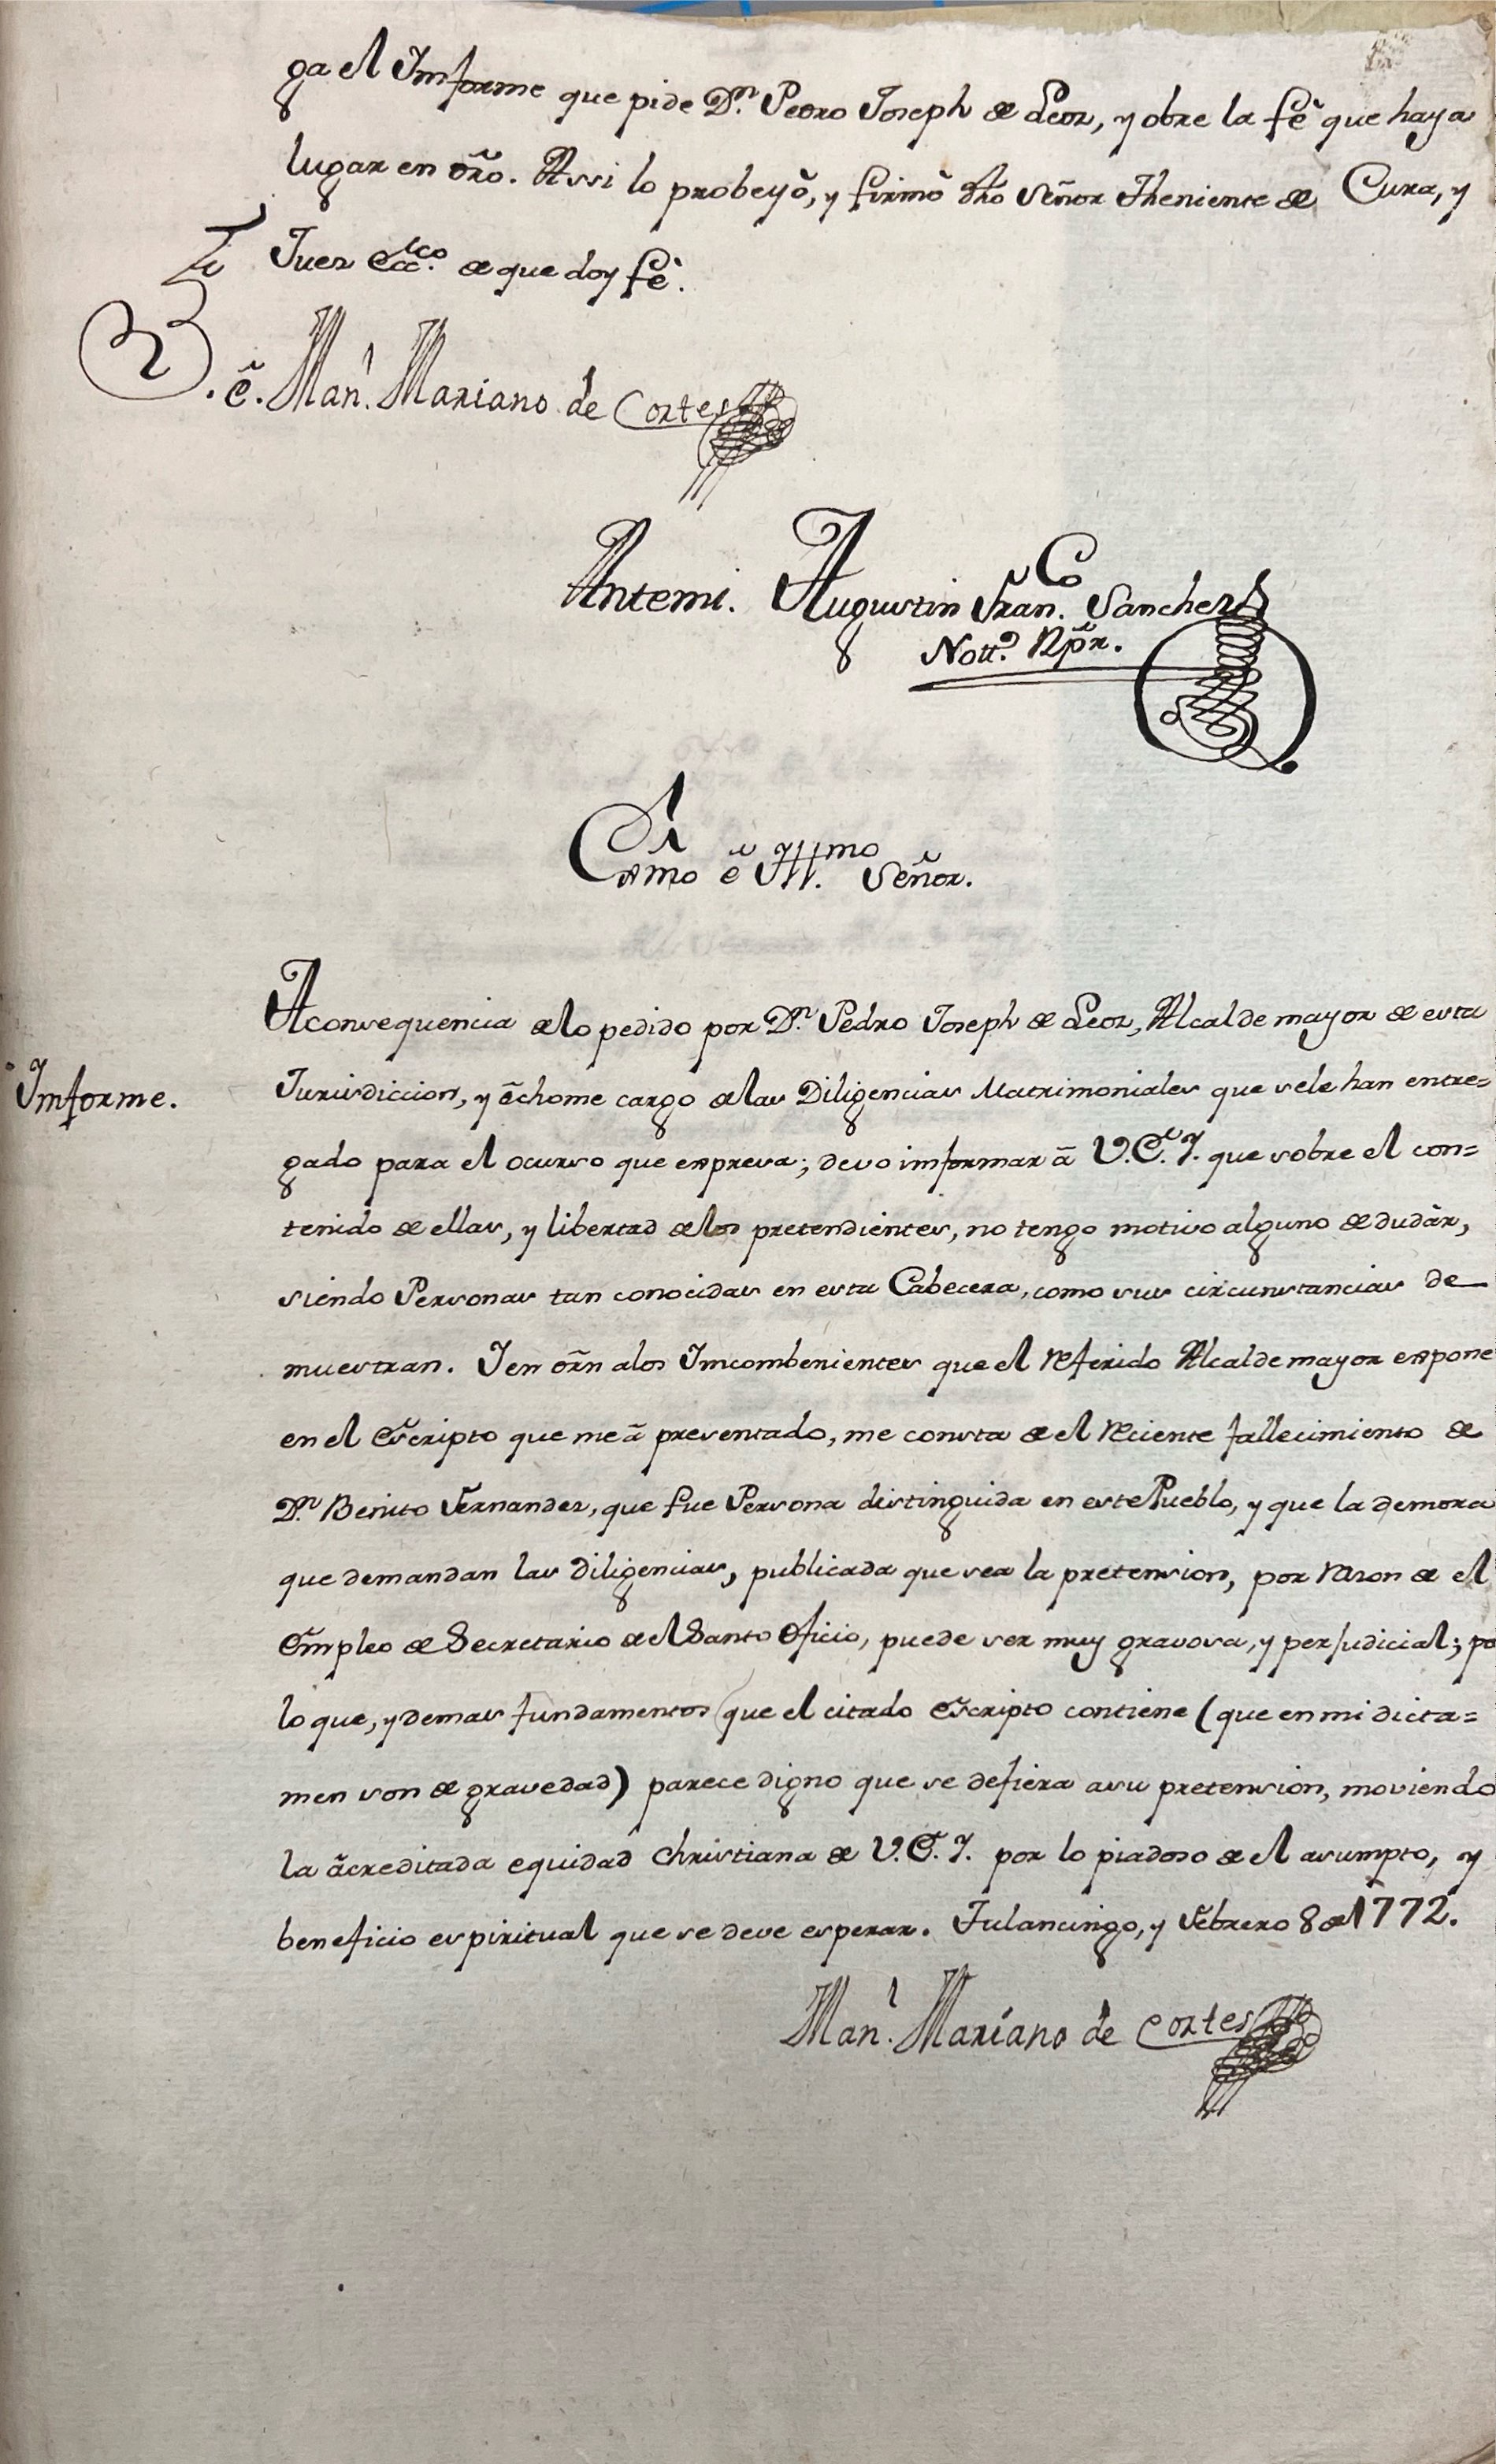 ga el Imforme que pide Dn. Pedro Joseph de Leoz, y obre la fê que haya
lugar en dro. Assi lo probeyô, y firmô dho Señor Theniente de Cura, y
Juez Ecco. de que doy fê.
Br. Man.l Mariano de Cortes
Antemi. Augustin Fran.co Sanchez
Nott.o Rpr.
Exmo é Yllmo Señor.
Aconsequencia delo pedido por Dn. Pedro Joseph de Leoz, Alcalde mayor de esta
Informe.
Jurisdiccion, y êchome cargo delas Diligencias Matrimoniales que sele han entre=
gado para el ocurso que expresa; devo imformar â V.E.Y. que sobre el con=
tenido de ellas, y libertad delos pretendientes, no tengo motivo alguno de dudàr,
siendo Personas tan conocidas en esta Cabecera, como sus circunstancias de
muestran. Y en orn alos Imcombenientes que el referido Alcalde mayor expone
en el Escripto que me â presentado, me consta de el reciente fallecimiento de
Dn. Benito Fernandez, que fue Persona distinguida en este Pueblo, y que la demora
que demandan las diligencias, publicada que sea la pretension, por razon de el
Empleo de Secretario de el Santo Oficio, puede ser muy gravosa, y perjudicial; po
lo que, y demas fundamentos que el citado Escripto contiene (que en mi dicta=
men son de gravedad) parece digno que se defiera asu pretension, moviendo
la âcreditada equidad christiana de V.E.Y. por lo piadoso de el asumpto, y
beneficio espiritual que se deve esperar. Tulancingo, y Febrero 8 de 1772.
Man.l Mariano de Cortes